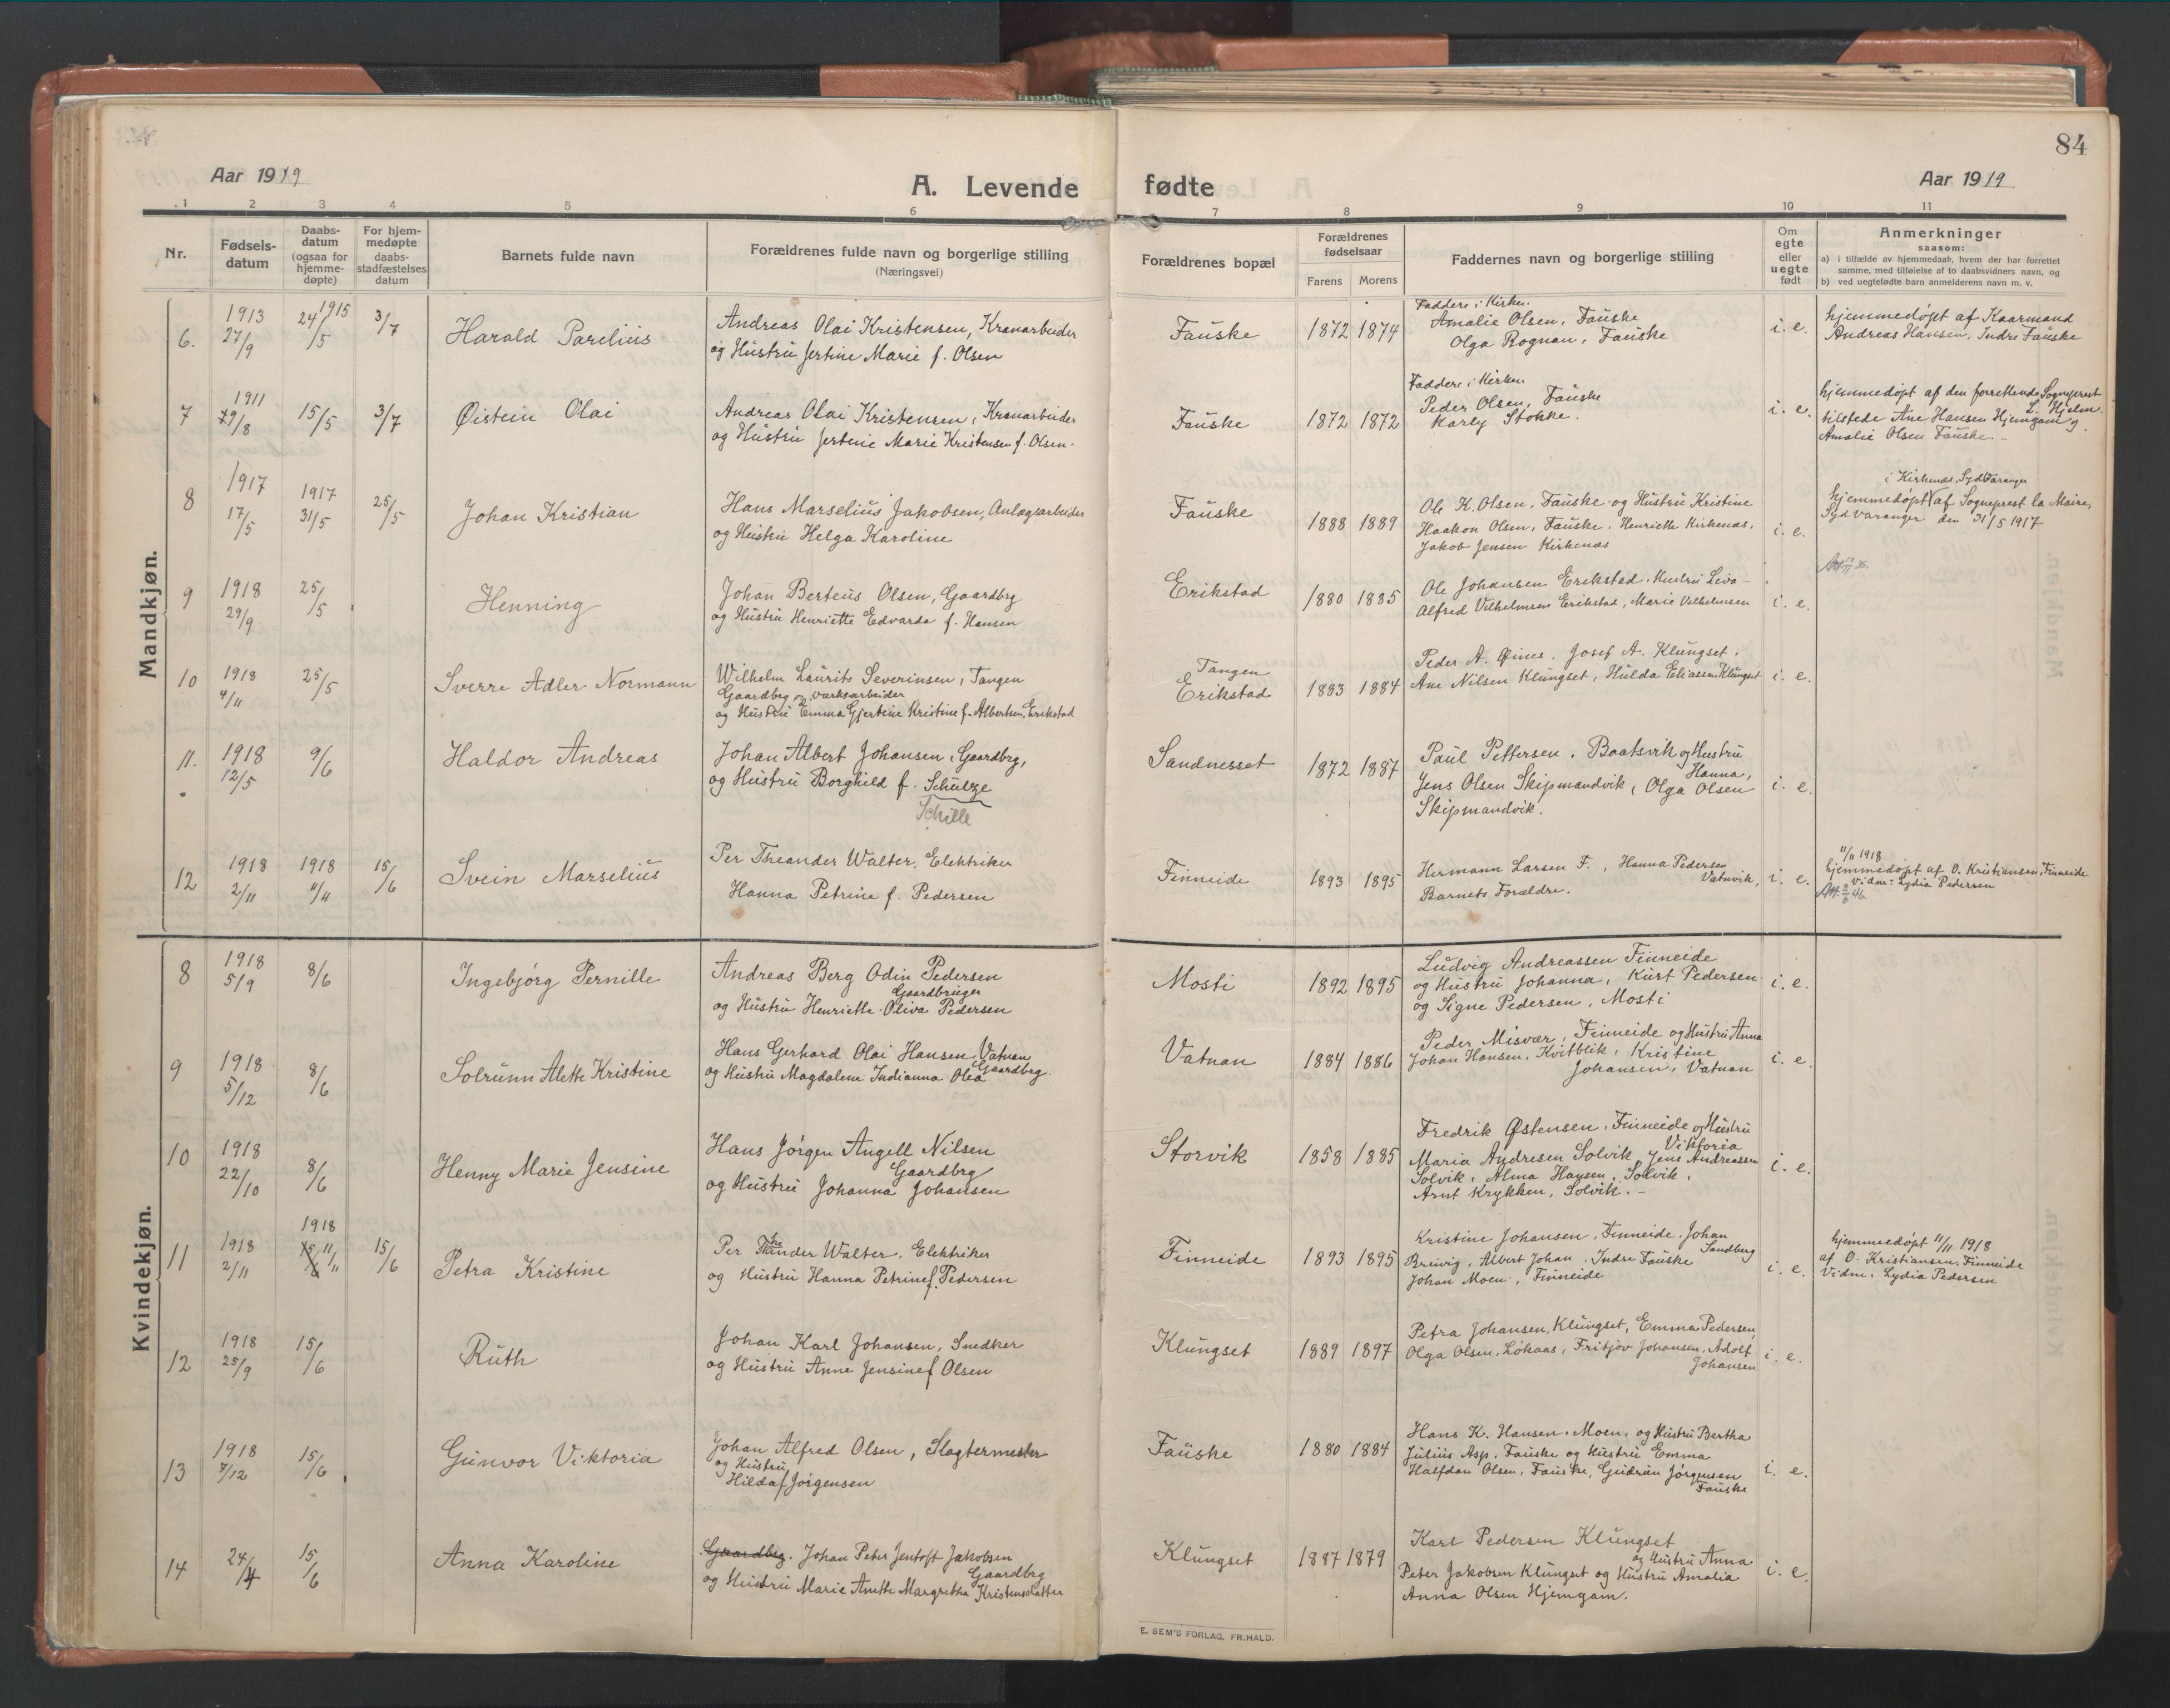 84
Aar 1919
A. Levende fødte
Aar 1919
1 2 3 4 5 6 7 8 9 10 11
Nr.
Fødsels-
datum
Daabs-
datum
(ogsaa for
hjemme-
døpte)
For hjem-
medøpte
daabs-
stadfæstelses
datum
Barnets fulde navn
Forældrenes fulde navn og borgerlige stilling
(Næringsvei)
Forældrenes bopæl
Forældrenes
fødselsaar
Farens Morens
Faddernes navn og borgerlige stilling
Om
egte
eller
uegte
født
Anmerkninger
saasom:
a) i tilfælde av hjemmedaab, hvem der har forrettet
samme, med tilføielse af to daabsvidners navn, og
b) ved uegtefødte barn anmelderens navn m. v.
Mandkjøn.
6. 1913 27/9 1915 24/5 3/7 Harald Parelius
Andreas Olai Kristensen, Kranarbeider
og Hustru Jertine Marie f. Olsen
Fauske 1872 1874
Faddere i Kirken.
Amalie Olsen, Fauske
Olga Rognan, Fauske
i. e.
hjemmedøpt af Kaarmand
Andreas Hansen, Indre Fauske
7 1911 29/8 15/5 3/7 Øistein Olai
Andreas Olai Kristensen, Kranarbeider
og Hustru Jertine Marie Kristensen f. Olsen.
Fauske 1872 1872
Faddere i Kirken
Peder Olsen, Fauske
Karly Stokke.
i. e.
hjemmedøpt af den forrettende Sogneprest
L. Hjelm.
tilstede Ane Hansen Hjemgam og
Amalie Olsen Fauske.
8 1917 17/5 1917 31/5 25/5 Johan Kristian
Hans Marselius Jakobsen, Anlægsarbeider
og Hustru Helga Karoline
Fauske 1888 1889
Ole K. Olsen, Fauske og Hustru Kristine
Haakon Olsen, Fauske, Henriette Kirkenæs,
Jakob Jensen Kirkenæs
i. e.
i Kirkenæs, Sydvaranger
hjemmedøpt af Sogneprest la Maire,
Sydvaranger den 31/5 1917
9 1918 29/9 25/5 Henning
Johan Berteus Olsen, Gaardbrg
og Hustru Henriette Edvarda f. Hansen
Erikstad 1880 1885
Ole Johansen Erikstad, Hustru Liva
Alfred Vilhelmsen Erikstad, Marie Vilhelmsen
i. e.
10 1918 4/11 25/5 Sverre Adler Normann
Wilhelm Laurits Severinsen, Tangen
Gaardbrg og værksarbeider
og Hustru Emma Gjertine Kristine f. Albertsen, Erikstad
Tangen
Erikstad 1883 1884
Peder A. Øines, Josef A. Klungset,
Ane Nilsen Klungset, Hulda Eliassen Klungset
i. e.
11. 1918 12/5 9/6 Haldor Andreas
Johan Albert Johansen, Gaardbrg,
og Hustru Borghild f. Schulze
Schille
Sandnesset 1872 1887
Paul Pettersen, Baatsvik og Hustru
Hanna,
Jens Olsen Skipmandvik, Olga Olsen
Skipmandvik.
i. e.
12 1918 2/11 1918 11/11 15/6 Svein Marselius
Per Theander Walter, Elektriker
Hanna Petrine f. Pedersen
Finneide 1893 1895
Hermann Larsen F., Hanna Pedersen
Vatnvik,
Barnets Forældre.
i. e.
11/11 1918
hjemmedøpt af O. Kristiansen, Finneide
Vidne: Lydia Pedersen
Kvindekjøn.
8 1918 5/9 8/6 Ingebjørg Pernille
Andreas Berg Odin Pedersen
Gaardbruger
og Hustru Henriette Oliva Pedersen
Mosti 1892 1895
Ludvig Andreassen Finneide
og Hustru Johanna, Kurt Pedersen
og Signe Pedersen, Mosti
i. e.
9 1918 5/12 8/6 Solrunn Alette Kristine
Hans Gerhard Olai Hansen, Vatnan
Gaardbrg.
og Hustru Magdalene Indianna Olea
Vatnan 1884 1886
Peder Misvær, Finneide og Hustru Anna
Johan Hansen, Kvitblik, Kristine
Johansen, Vatnan
i. e.
10 1918 22/10 8/6 Henny Marie Jensine
Hans Jørgen Angell Nilsen
Gaardbrg
og Hustru Johanna Johansen
Storvik 1858 1885
Fredrik Østensen, Finneide og Hustru
Viktoria
Maria Andresen Solvik, Jens Andreassen
Solvik, Alma Hansen, Solvik,
Arnt Krykken, Solvik.
i. e.
11 1918 2/11 1918 11/11 15/6 Petra Kristine
Per Theander Walter, Elektriker
og Hustru Hanna Petrine f. Pedersen
Finneide 1893 1895
Kristine Johansen, Finneide, Johan
Sandberg
Breivig, Albert Johan, Indre Fauske
Johan Moen, Finneide
i. e.
hjemmedøpt 11/11 1918
af O. Kristiansen, Finneide
Vidne: Lydia Pedersen
12 1918 25/9 15/6 Ruth
Johan Karl Johansen, Snedker
og Hustru Anne Jensine f Olsen
Klungset 1889 1897
Petra Johansen, Klungset, Emma Pedersen,
Olga Olsen, Løkaas, Fritjov Johansen, Adolf
Johansen
i. e.
13 1918 7/12 15/6 Gunvor Viktoria
Johan Alfred Olsen, Slagtermester
og Hustru
Hilda f Jørgensen
Fauske 1880 1884
Hans K. Hansen, Moen, og Hustru Bertha
Julius Asp, Fauske og Hustru Emma
Halfdan Olsen, Fauske, Gudrun Jørgensen
Fauske
i. e.
14 24/4 15/6 Anna Karoline
Gaardbrg. Johan Peter Jentoft Jakobsen
Gaardbrg
og Hustru Marie Anette Margretha Kristensdatter
Klungset 1887 1879
Karl Pedersen Klungset
og Hustru Anna
Peter Jakobsen Klungset og Hustru Amalia
Anna Olsen Hjemgam.
i. e.
E. SEM'S FORLAG, FR.HALD.